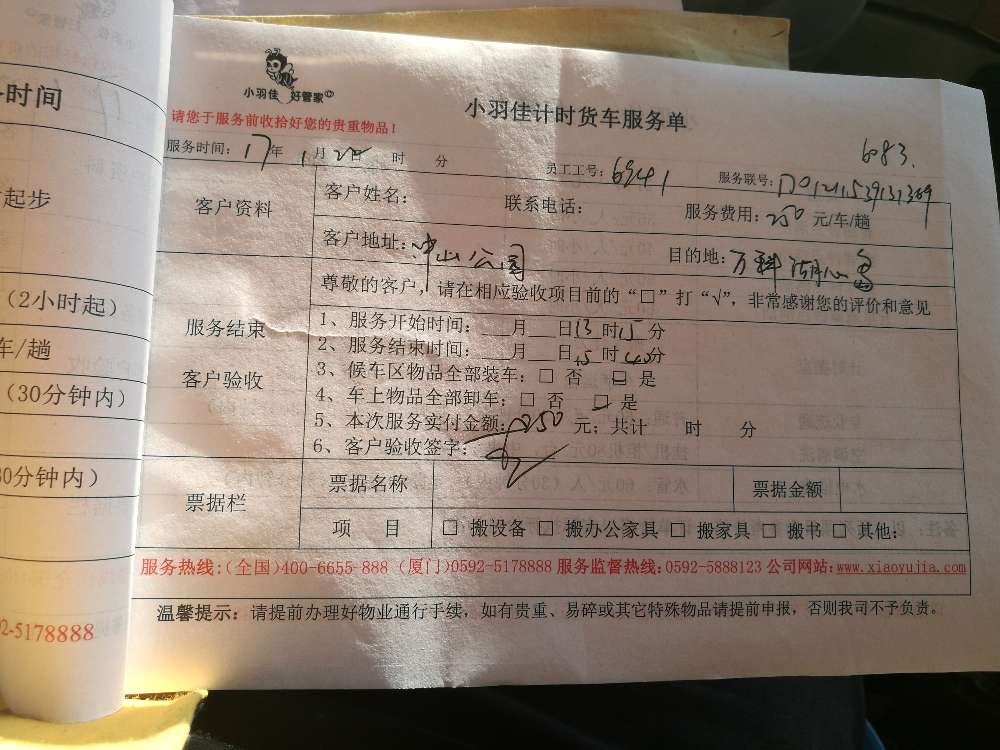 时间
起步
（2小时起）
车/趟
（30分钟内）
30分钟内）
92-5178888
小羽佳 好管家
小羽佳计时货车服务单
请您于服务前收拾好您的贵重物品！
6083.
服务时间：17年1月20日 时 分 员工工号：6941 服务联号：D0121539131369
客户资料
客户姓名： 联系电话： 服务费用：250元/车/趟
客户地址：中山公园 目的地：万科湖心岛
服务结束
客户验收
尊敬的客户，请在相应验收项目前的“□”打“√”，非常感谢您的评价和意见
1、服务开始时间：___月___日13时15分
2、服务结束时间：___月___日15时40分
3、候车区物品全部装车：□ 否 □ 是
4、车上物品全部卸车：□ 否 □ 是
5、本次服务实付金额：250元；共计 时 分
6、客户验收签字：
票据栏
票据名称 票据金额
项 目 □ 搬设备 □ 搬办公家具 □ 搬家具 □ 搬书 □ 其他：
服务热线：(全国)400-6655-888 (厦门)0592-5178888 服务监督热线：0592-5888123 公司网站：www.xiaoyujia.com
温馨提示：请提前办理好物业通行手续，如有贵重、易碎或其它特殊物品请提前申报，否则我司不予负责。